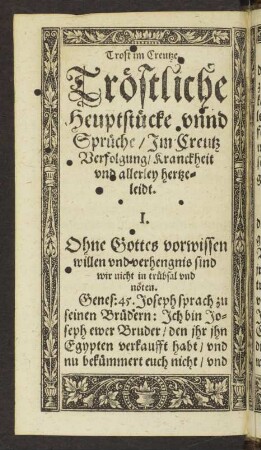 Trost im Creutze.
Tröstliche
Heuptstücke vnnd
Sprüche / Im Creutz
Verfolgung / Kranckheit
vnd allerley hertze-
leidt.
I.
Ohne Gottes vorwissen
willen vnd verhengnis sind
wir nicht in trübsal vnd
nöten.
Genes: 45. Joseph sprach zu
seinen Brüdern: Ich bin Jo-
seph ewer Bruder / den jhr jhn
Egypten verkaufft habt / vnd
nu bekümmert euch nicht / vnd